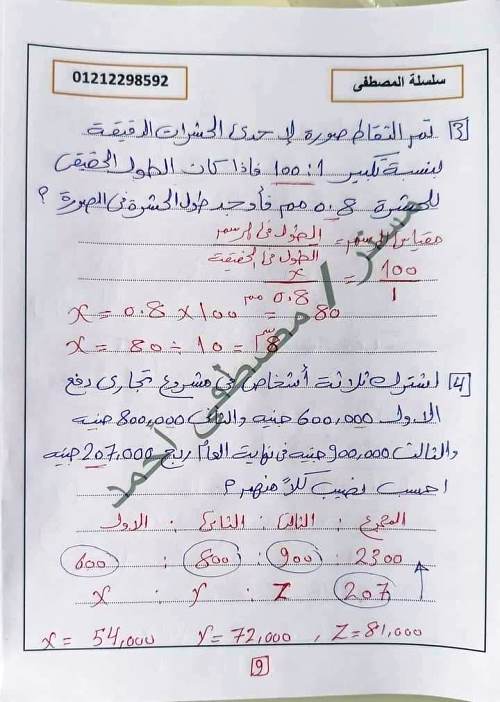 01212298592
سلسلة المصطفى
[3] تم التقاط صورة لإحدى الحشرات الدقيقة
بنسبة تكبير 1 : 100 فإذا كان الطول الحقيقى
للحشرة 0.8 مم فأوجد طول الحشرة فى الصورة ؟
مقياس الرسم = الطول فى الرسم / الطول فى الحقيقة
100 / 1 = x / 0.8 مم
x = 0.8 × 100 = 80
x = 80 ÷ 10 = 8 سم
[4] اشترك ثلاثة أشخاص فى مشروع تجارى دفع
الاول 600,000 جنيه والثانى 800,000 جنيه
والثالث 900,000 جنيه فى نهايت العام ربح 207,000 جنيه
احسب نصيب كلاً منهم ؟
الاول : الثانى : الثالث : المجموع
600 : 800 : 900 : 2300
x : y : z : 207
x = 54,000 y = 72,000 , z = 81,000
9
مستر / مصطفى احمد